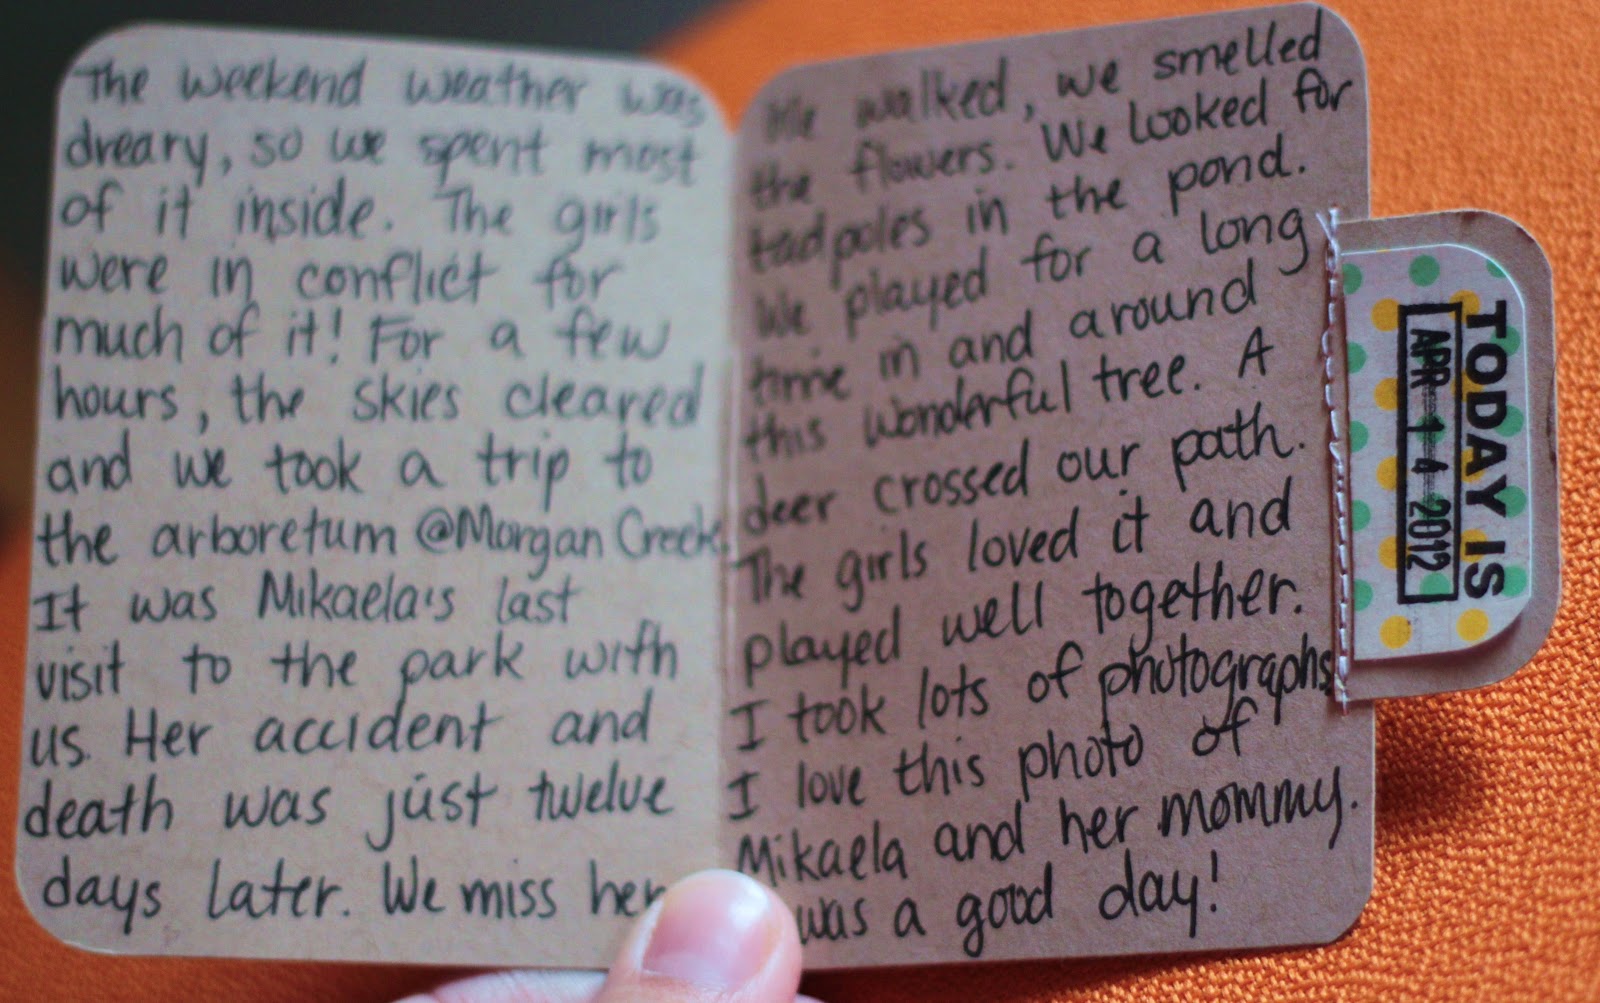 The weekend weather was
dreary, so we spent most
of it inside. The girls
were in conflict for
much of it! For a few
hours, the skies cleared
and we took a trip to
the arboretum @Morgan Creek.
It was Mikaela's last
visit to the park with
us. Her accident and
death was just twelve
days later. We miss her
We walked, we smelled
the flowers. We looked for
tadpoles in the pond.
We played for a long
time in and around
this wonderful tree. A
deer crossed our path.
The girls loved it and
played well together.
I took lots of photographs.
I love this photo of
Mikaela and her mommy.
was a good day!
TODAY IS
APR 14 2012